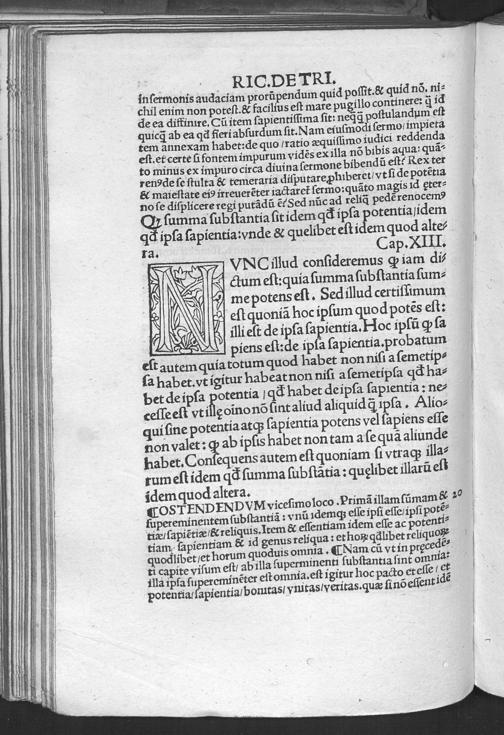 RIC.DE TRI.
in sermonis audaciam prorūpendum quid possit.& quid nō. ni-
chil enim non potest.& facilius est mare pugillo continere: q̄ id
de ea diffinire. Cū item sapientissima sit: neqꝫ postulandum est
quicq̄ ab ea qd̄ fieri absurdum sit. Nam eiusmodi sermo/impieta
tem annexam habet: de quo/ratio æquissimo iudici reddenda
est. et certe si fontem impurum vidēs ex illa nō bibis aqua: quā-
to minus ex impuro circa diuina sermone bibendū est? Rex ter
renꝰ de se stulta & temeraria disputare ꝓhiberet/vt si de potētia
& maiestate eiꝰ irreuerēter iactaret̄ sermo: quāto magis id eter-
no se displicere regi putādū ē? Sed nūc ad reliq̄ pede renocemꝰ
Qꝫ summa substantia sit idem qd̄ ipsa potentia/idem
qd̄ ipsa sapientia: vnde & quelibet est idem quod alte-
ra. Cap.XIII.
NVNC illud consideremus qꝫ iam di-
ctum est: quia summa substantia sum-
me potens est. Sed illud certissimum
est quoniā hoc ipsum quod potēs est:
illi est de ipsa sapientia. Hoc ipsū qꝫ sa
piens est: de ipsa sapientia. probatum
est autem quia totum quod habet non nisi a semetip-
sa habet. vt igitur habeat non nisi a semetipsa qd̄ ha-
bet de ipsa potentia/qd̄ habet de ipsa sapientia: ne-
cesse est vt illę oīno nō sint aliud aliquid q̄ ipsa. Alio-
qui sine potentia atqꝫ sapientia potens vel sapiens esse
non valet: qꝫ ab ipsis habet non tam a se quā aliunde
habet. Consequens autem est quoniam si vtraqꝫ illa-
rum est idem qd̄ summa substātia: quęlibet illarū est
idem quod altera.
¶OSTENDENDVM vicesimo loco. Primā illam sūmam & 20
supereminentem substantiā: vnū idemqꝫ esse ipsi esse/ipsi potē-
tiæ/sapiētiæ/& reliquis. Item & essentiam idem esse ac potenti-
tiam sapientiam & id genus reliqua: et horꝝ qdlibet reliquorꝝ
quodlibet/et horum quoduis omnia. ¶Nam cū vt in pręcedē-
ti capite visum est/ab illa superminenti substantia sint omnia:
illa ipsa supereminēter est omnia. est igitur hoc pacto et esse/et
potentia/sapientia/bonitas/vnitas/veritas. quæ si nō essent idē